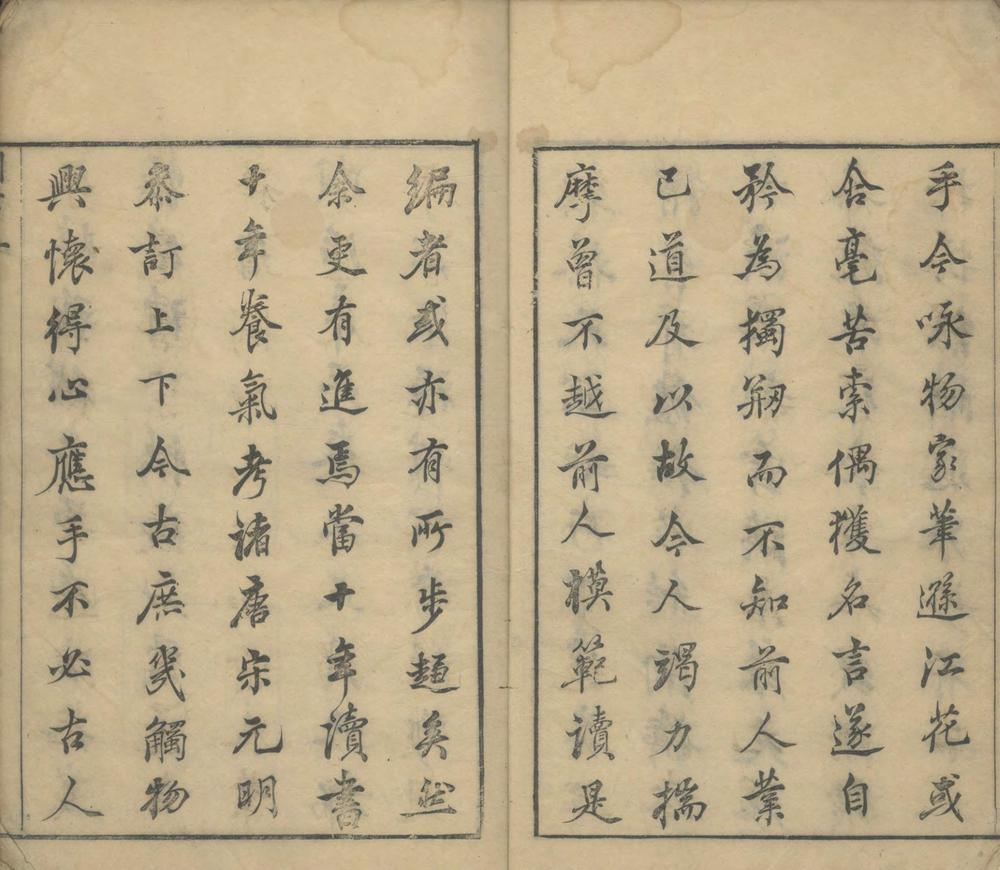 手今咏物家筆遜江花或
含毫苦索偶獲名言遂自
矜為獨剏而不知前人業
已道及以故今人竭力揣
摩曾不越前人模範讀是
編者或亦有所步趨矣然
余更有進焉當十年讀書
十年養氣考諸唐宋元明
叅訂上下今古庶幾觸物
興懷得心應手不必古人